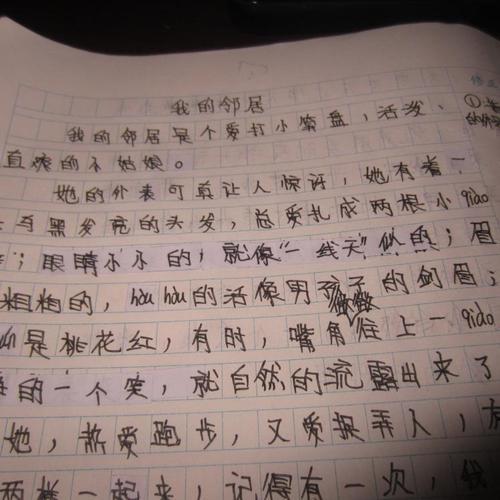 我的邻居
我的邻居是个爱打小算盘，活泼、
直爽的小姑娘。
她的外表可真让人惊讶，她有着一
乌黑发亮的头发，总爱扎成两根小qiào
；眼睛小小的，就像“一线天”似的；眉
粗粗的，hòu hòu的活像男孩子的剑眉；
是桃花红，有时，嘴角微微往上一qiào
的一个笑，就自然的流露出来了
她，热爱跑步，又爱捉弄人，
一起来，记得有一次，我
①